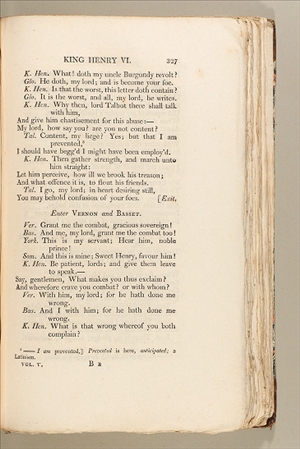 KING HENRY VI. 227
K. Hen. What! doth my uncle Burgundy revolt?
Glo. He doth, my lord; and is become your foe.
K. Hen. Is that the worst, this letter doth contain?
Glo. It is the worst, and all, my lord, he writes.
K. Hen. Why then, lord Talbot there shall talk
with him,
And give him chastisement for this abuse:—
My lord, how say you? are you not content?
Tal. Content, my liege? Yes; but that I am
prevented,⁸
I should have begg'd I might have been employ'd.
K. Hen. Then gather strength, and march unto
him straight:
Let him perceive, how ill we brook his treason;
And what offence it is, to flout his friends.
Tal. I go, my lord; in heart desiring still,
You may behold confusion of your foes. [Exit.
Enter VERNON and BASSET.
Ver. Grant me the combat, gracious sovereign!
Bas. And me, my lord, grant me the combat too!
York. This is my servant; Hear him, noble
prince!
Som. And this is mine; Sweet Henry, favour him!
K. Hen. Be patient, lords; and give them leave
to speak.—
Say, gentlemen, What makes you thus exclaim?
And wherefore crave you combat? or with whom?
Ver. With him, my lord; for he hath done me
wrong.
Bas. And I with him; for he hath done me
wrong.
K. Hen. What is that wrong whereof you both
complain?
⁸ — I am prevented,] Prevented is here, anticipated; a
Latinism.
VOL. V. B E